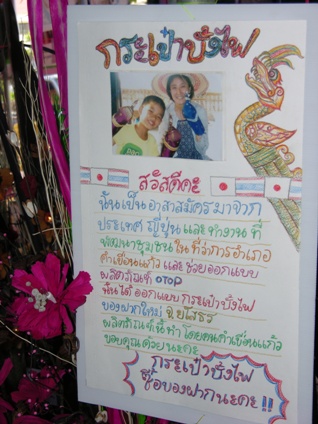 กระเป๋าบั้งไฟ
สวัสดีคะ
ฉันเป็นอาสาสมัครมาจาก
ประเทศ ญี่ปุ่น และ ทำงาน ที่
พัฒนาชุมชน ใน ที่ว่าการอำเภอ
คำเขื่อนแก้ว และ ช่วยออกแบบ
ผลิตภัณฑ์ OTOP
ฉันได้ ออกแบบ กระเป๋าบั้งไฟ
ของฝากใหม่ จ.ยโสธร
ผลิตภัณฑ์นี้ทำโดยคนคำเขื่อนแก้ว
ขอบคุณด้วยนะคะ
กระเป๋าบั้งไฟ
ซื้อของฝากนะคะ !!